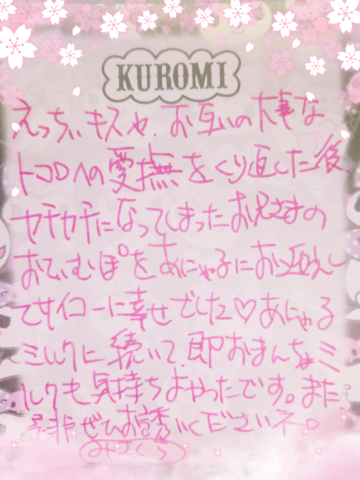 KUROMI
えっちぃキスや、お互いの大事な
トコロへの愛撫をくり返した後、
カチカチになってしまったお兄さまの
おてぃむぽ°をあにゃるにお迎えし
てサイコーに幸せでした♡あにゃる
ミルクに続いて、即おまんちょミ
ルクも気持ちよかったです。また
是非ぜひお誘いくださいネ。
みさくら